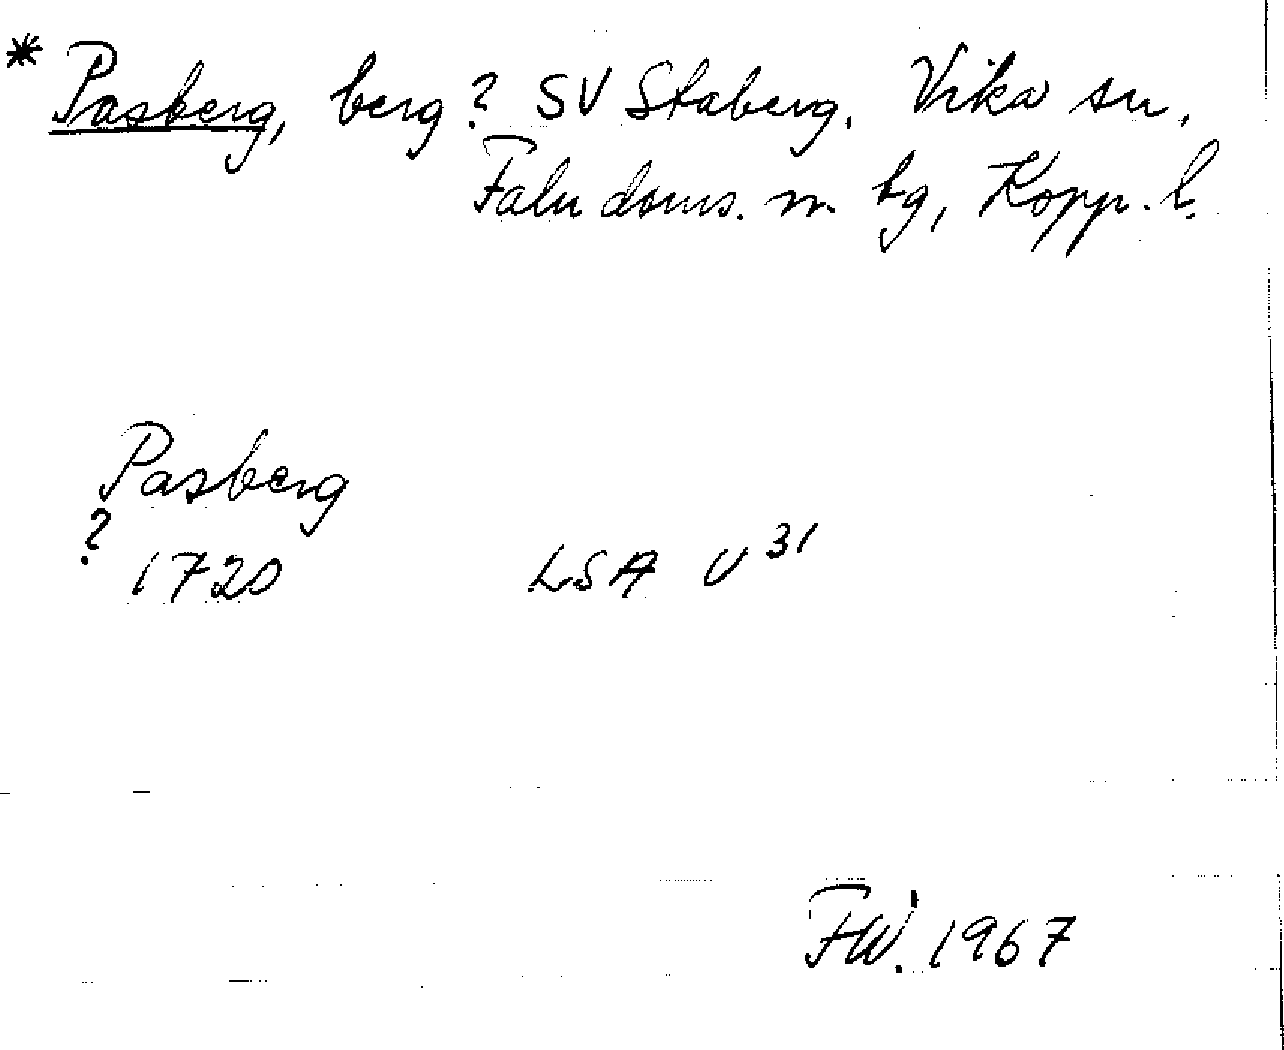 * Pasberg, berg? SV Staberg. Vika sn,
Falu doms. m bg, Kopp. l.
Pasberg
?
1720 LSA U 31
FW. 1967